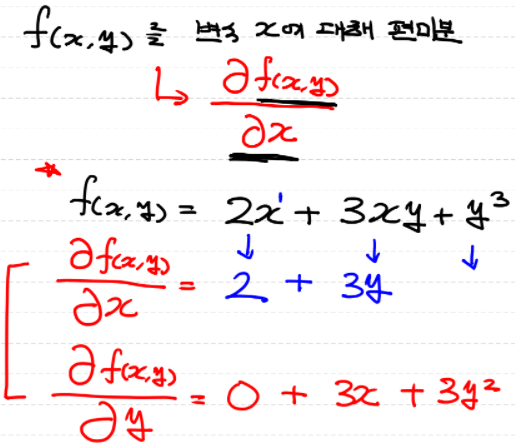 f(x,y)를 변수 x에 대해 편미분
↳ ∂f(x,y)/∂x
* f(x,y) = 2x¹ + 3xy + y³
↓ ↓ ↓
∂f(x,y)/∂x = 2 + 3y
∂f(x,y)/∂y = 0 + 3x + 3y²